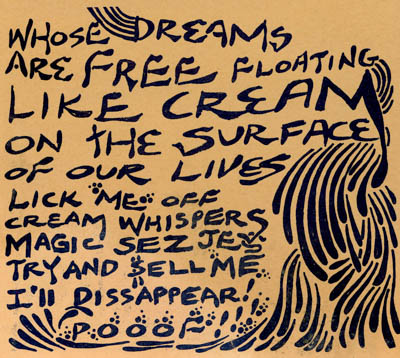 WHOSE DREAMS
ARE FREE FLOATING
LIKE CREAM
ON THE SURFACE
OF OUR LIVES
LICK "ME" OFF
CREAM WHISPERS
MAGIC SEZ JES
TRY AND SELL ME
I'll DISSAPPEAR!
POOOF!!